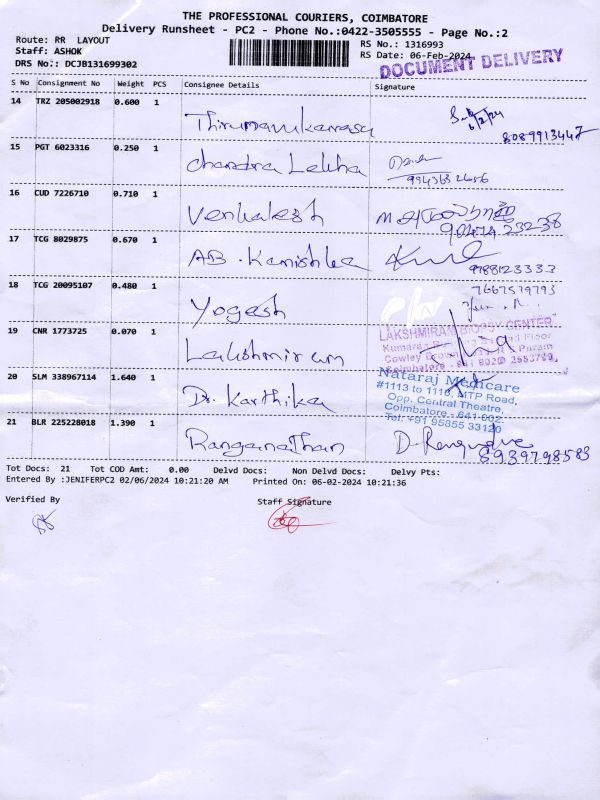 THE PROFESSIONAL COURIERS, COIMBATORE
Delivery Runsheet - PC2 - Phone No.:0422-3505555 - Page No.:2
Route: RR LAYOUT
Staff: ASHOK
DRS No.: DCJB131699302
RS No.: 1316993
RS Date: 06-Feb-2024
DOCUMENT DELIVERY
S No Consignment No Weight PCS Consignee Details Signature
14 TRZ 205002918 0.600 1 Thirumavukarasu 6/2/24
8089913447
15 PGT 6023316 0.250 1 Chandra Lekha
9943682656
16 CUD 7226710 0.710 1 Venkatesh
90474 23238
17 TCG 8029875 0.670 1 AB. Kanishka
9788123333
18 TCG 20095107 0.480 1 Yogesh 7667579793
19 CNR 1773725 0.070 1 Lakshmiram LAKSHMIRAM BIOPSY CENTER
Floor
Cowley Brown R S Puram
Coimbatore
20 SLM 338967114 1.640 1 Dr. Karthika Nataraj Medicare
#1113 to 1116, MTP Road,
Opp. Central Theatre,
Coimbatore - 641 002.
Tel: +91 95855 33120
21 BLR 225228018 1.390 1 Ranganathan D.
8939798583
Tot Docs: 21 Tot COD Amt: 0.00 Delvd Docs: Non Delvd Docs: Delvy Pts:
Entered By :JENIFERPC2 02/06/2024 10:21:20 AM Printed On: 06-02-2024 10:21:36
Verified By Staff Signature